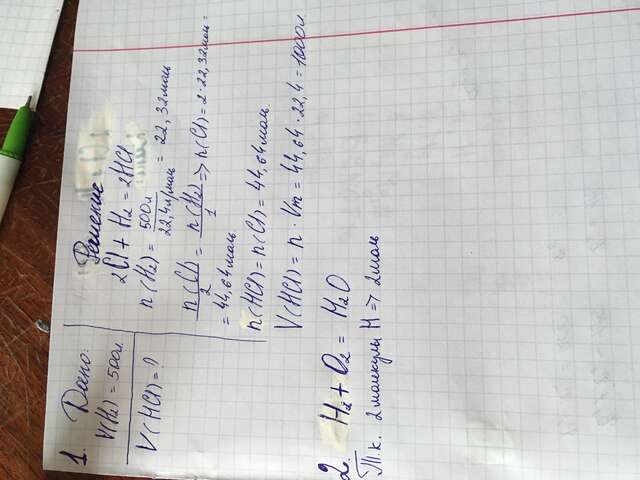 1. Дано:
V(H₂) = 500л
V(HCl) = ?
Решение
2Cl + H₂ = 2HCl
n(H₂) = 500л / 22,4л/моль = 22,32моль
n(Cl) / 2 = n(H₂) / 1 => n(Cl) = 2·22,32моль =
= 44,64моль.
n(HCl) = n(Cl) = 44,64моль.
V(HCl) = n · Vm = 44,64·22,4 = 1000л
2. H₂ + O₂ = H₂O
Т.к. 2 молкулы H => 2моль